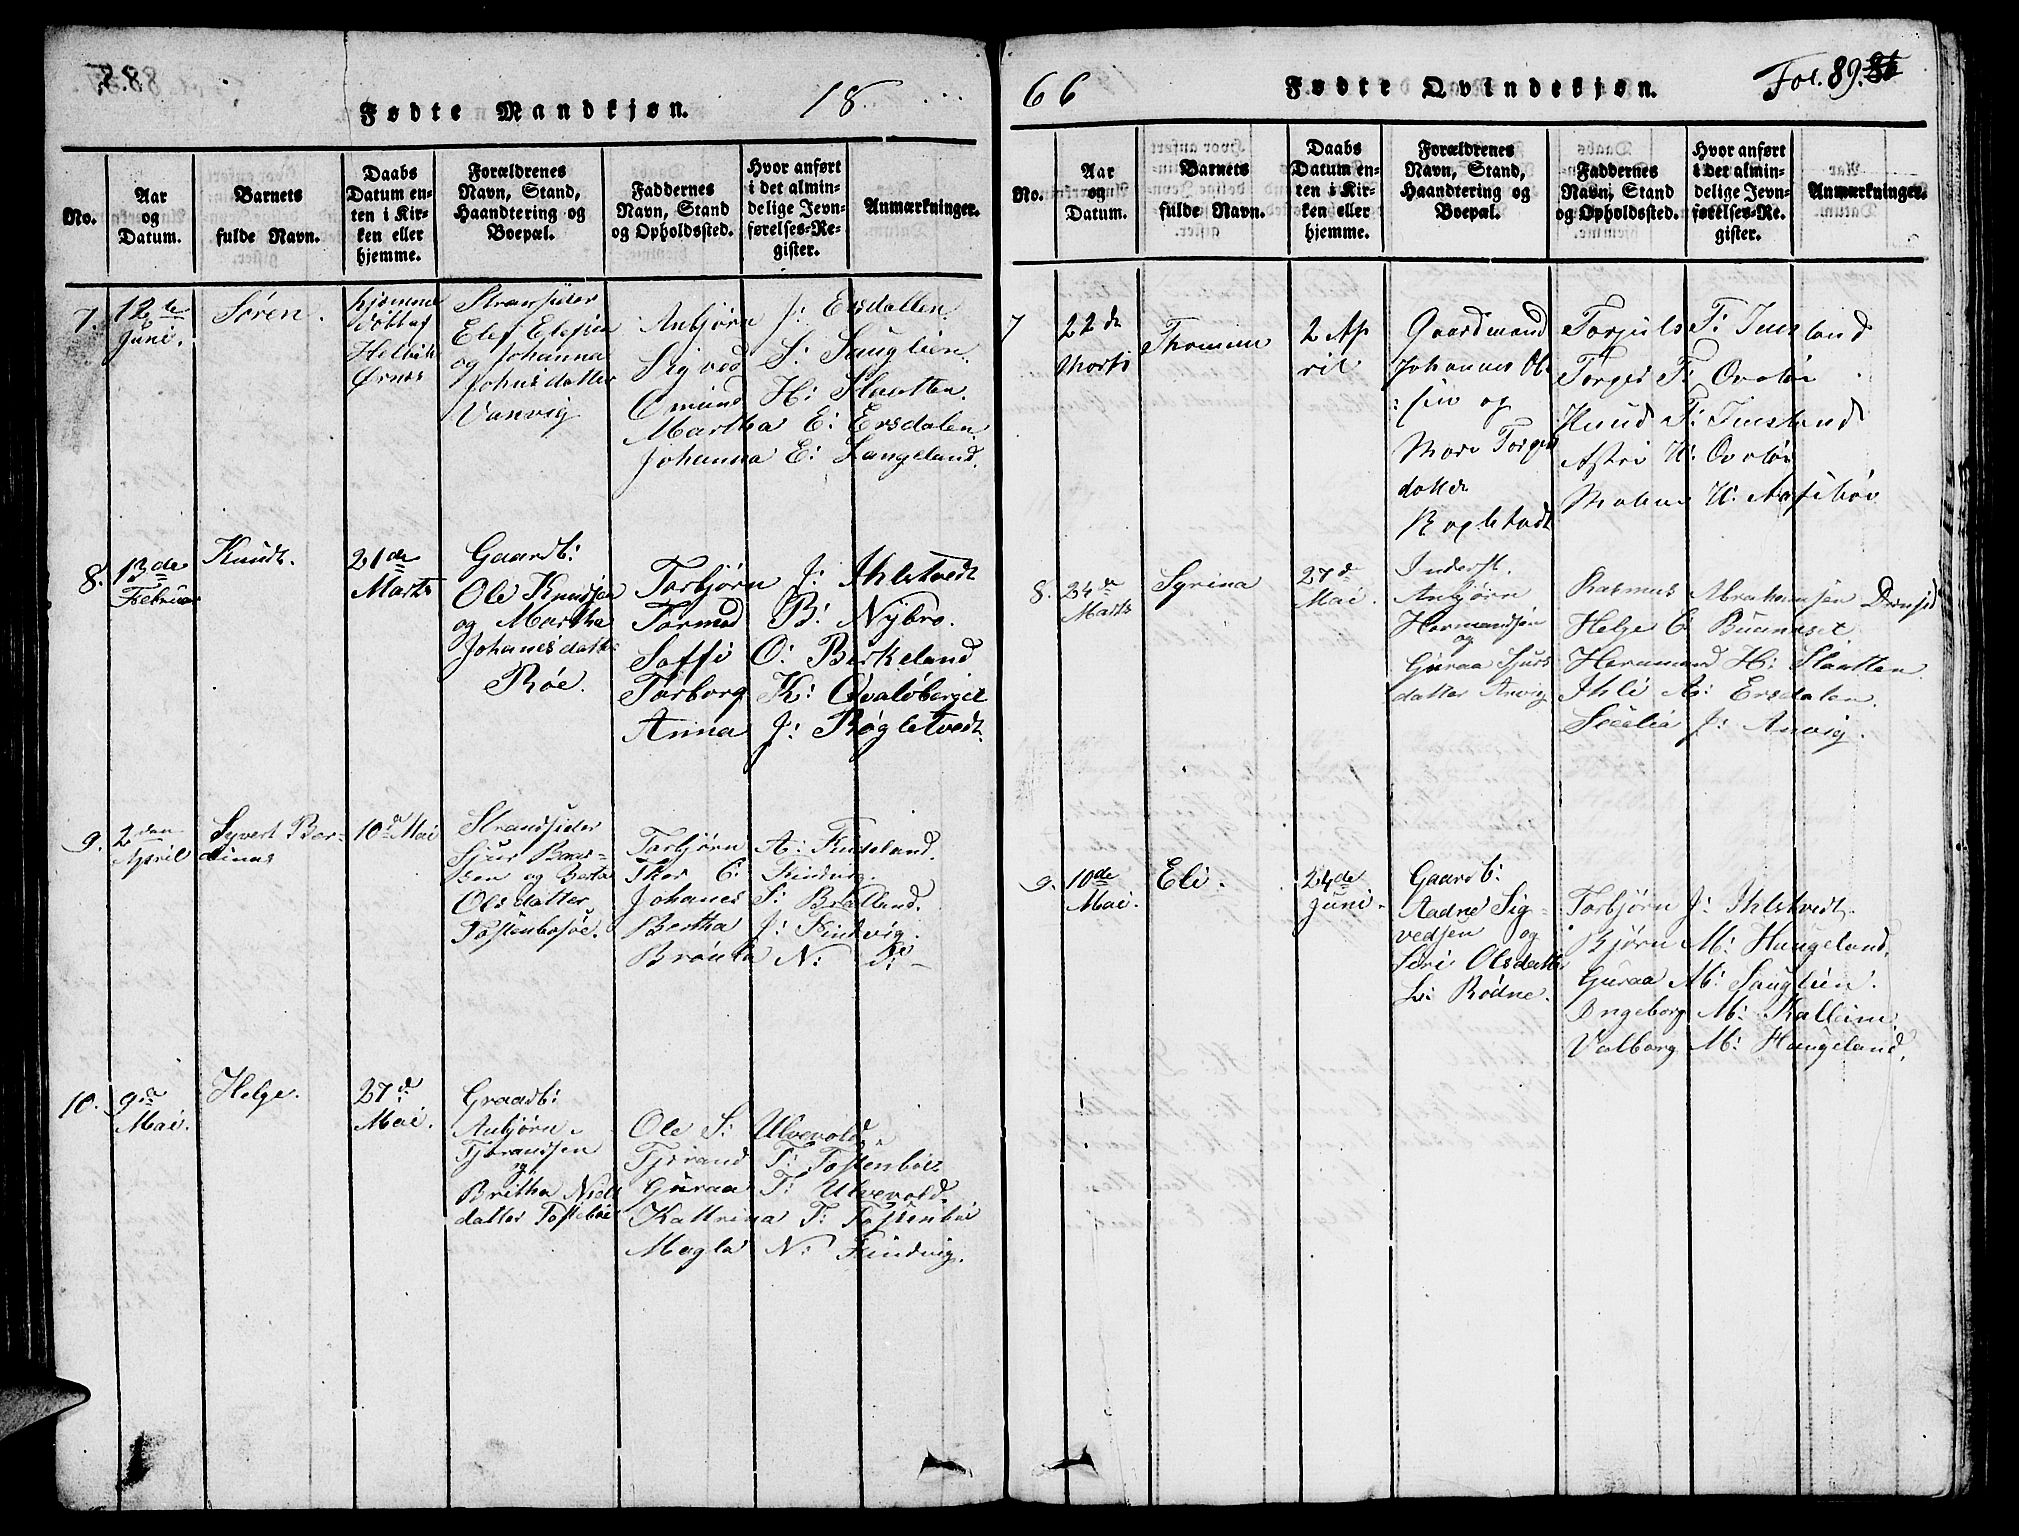 88.
Fødte Mandkjøn.
18
No.
Aar og Datum.
Barnets fulde Navn.
Daabs Datum enten i Kirken eller hjemme.
Forældrenes Navn, Stand, Haandtering og Boepæl.
Faddernes Navn, Stand og Opholdssted.
Hvor anført i det almindelige Jevnførelses-Register.
Anmærkninger.
7.
12te
Juni.
Søren.
hjemme
døbt af
Helvik
Ørnes
Strandsider
Elef Elefsen
og Johanna
Johnsdatter
Vanvig
Anbjørn J: Ersdallen
Sigved S: Sauglien.
Omund H: Slaatten.
Martha E: Ersdalen
Johanna E: Langeland.
8.
13de
Februar
Knudt.
21de
Marts
Gaardb:
Ole Knudsen
og Martha
Johanesdatter
Røe.
Torbjørn J: Ihlstvedt
Tormod B: Nybro.
Soffi O: Birkeland
Torborg K: Qvaløberget
Anna J: Røgletvedt.
9.
2den
April
Syvert Bardinus
10de Mai
Strandsider
Sjur Baardsen og Berta
Olsdatter
Tostenbøsøe.
Torbjørn A:
Thor C: Findvig.
Johanes S: Bråland.
Bertha J: Findvig.
N: do
10.
9de
Mai.
Helge.
27de
Mai.
Graadb:
Anbjørn
Tjorandsen
og
Britha Niels
datter Tostebøe
Ole S: Ulvevold.
Tjorand T: Tostenbøe
Guraa T: Ulvevold.
Kattrina T: Tostenbøe
Magla N: Findvig.
66
Fødte Qvindekjøn.
Fol. 89.
No.
Aar og Datum.
Barnets fulde Navn.
Daabs Datum enten i Kirken eller hjemme.
Forældrenes Navn, Stand, Haandtering og Boepæl.
Faddernes Navn, Stand og Opholdssted.
Hvor anført i det almindelige Jevnførelses-Re-gister.
Anmærkninger.
7
22de
Marts
Thomine
2 Ap
ril
Gaardmand
Johannes Ol
:sen og
Mari Torges
datter
Roglstadt
Torjuls T: Imsland
Torges T: Ovabøe
Knud T: Imsland
Astri K: Ovabøe
Malene K:
8.
24de
Marts
Syrina
27de
Mai.
Inderst.
Anbjørn
Hermandsen
og
Guraa Sjurs
datter Anvig
Rasmus Abrahamsen
Helge C
Heramund H: Slaatten.
Ihli A: Ersdalen.
Seselia J: Anvig.
9.
10de
Mai.
Eli.
24de
Juni.
Gaardb:
Aadne Sig-
vedsen og
Seri Olsdatter
L: Rødne.
Torbjørn J: Ihlstvedt.
Bjørn M: Haugeland.
Guraa M: Sauglien.
Ingeborg M: Kalleim.
Valborg M: Haugeland.